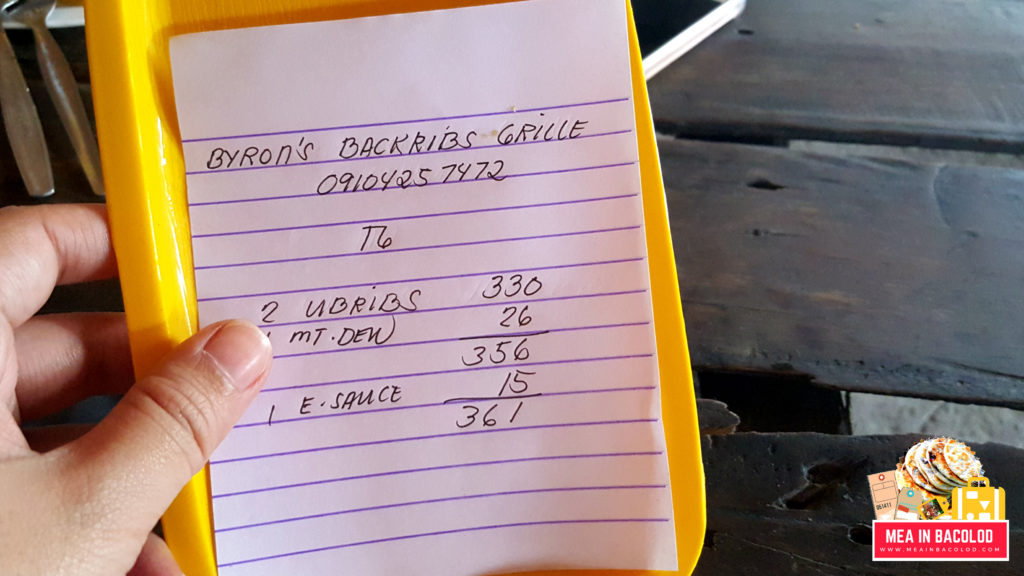 BYRON'S BACKRIBS GRILLE
09104257472
T6
2 UBRIBS 330
MT.DEW 26
356
1 E.SAUCE 15
361
MEA IN BACOLOD
WWW.MEAINBACOLOD.COM